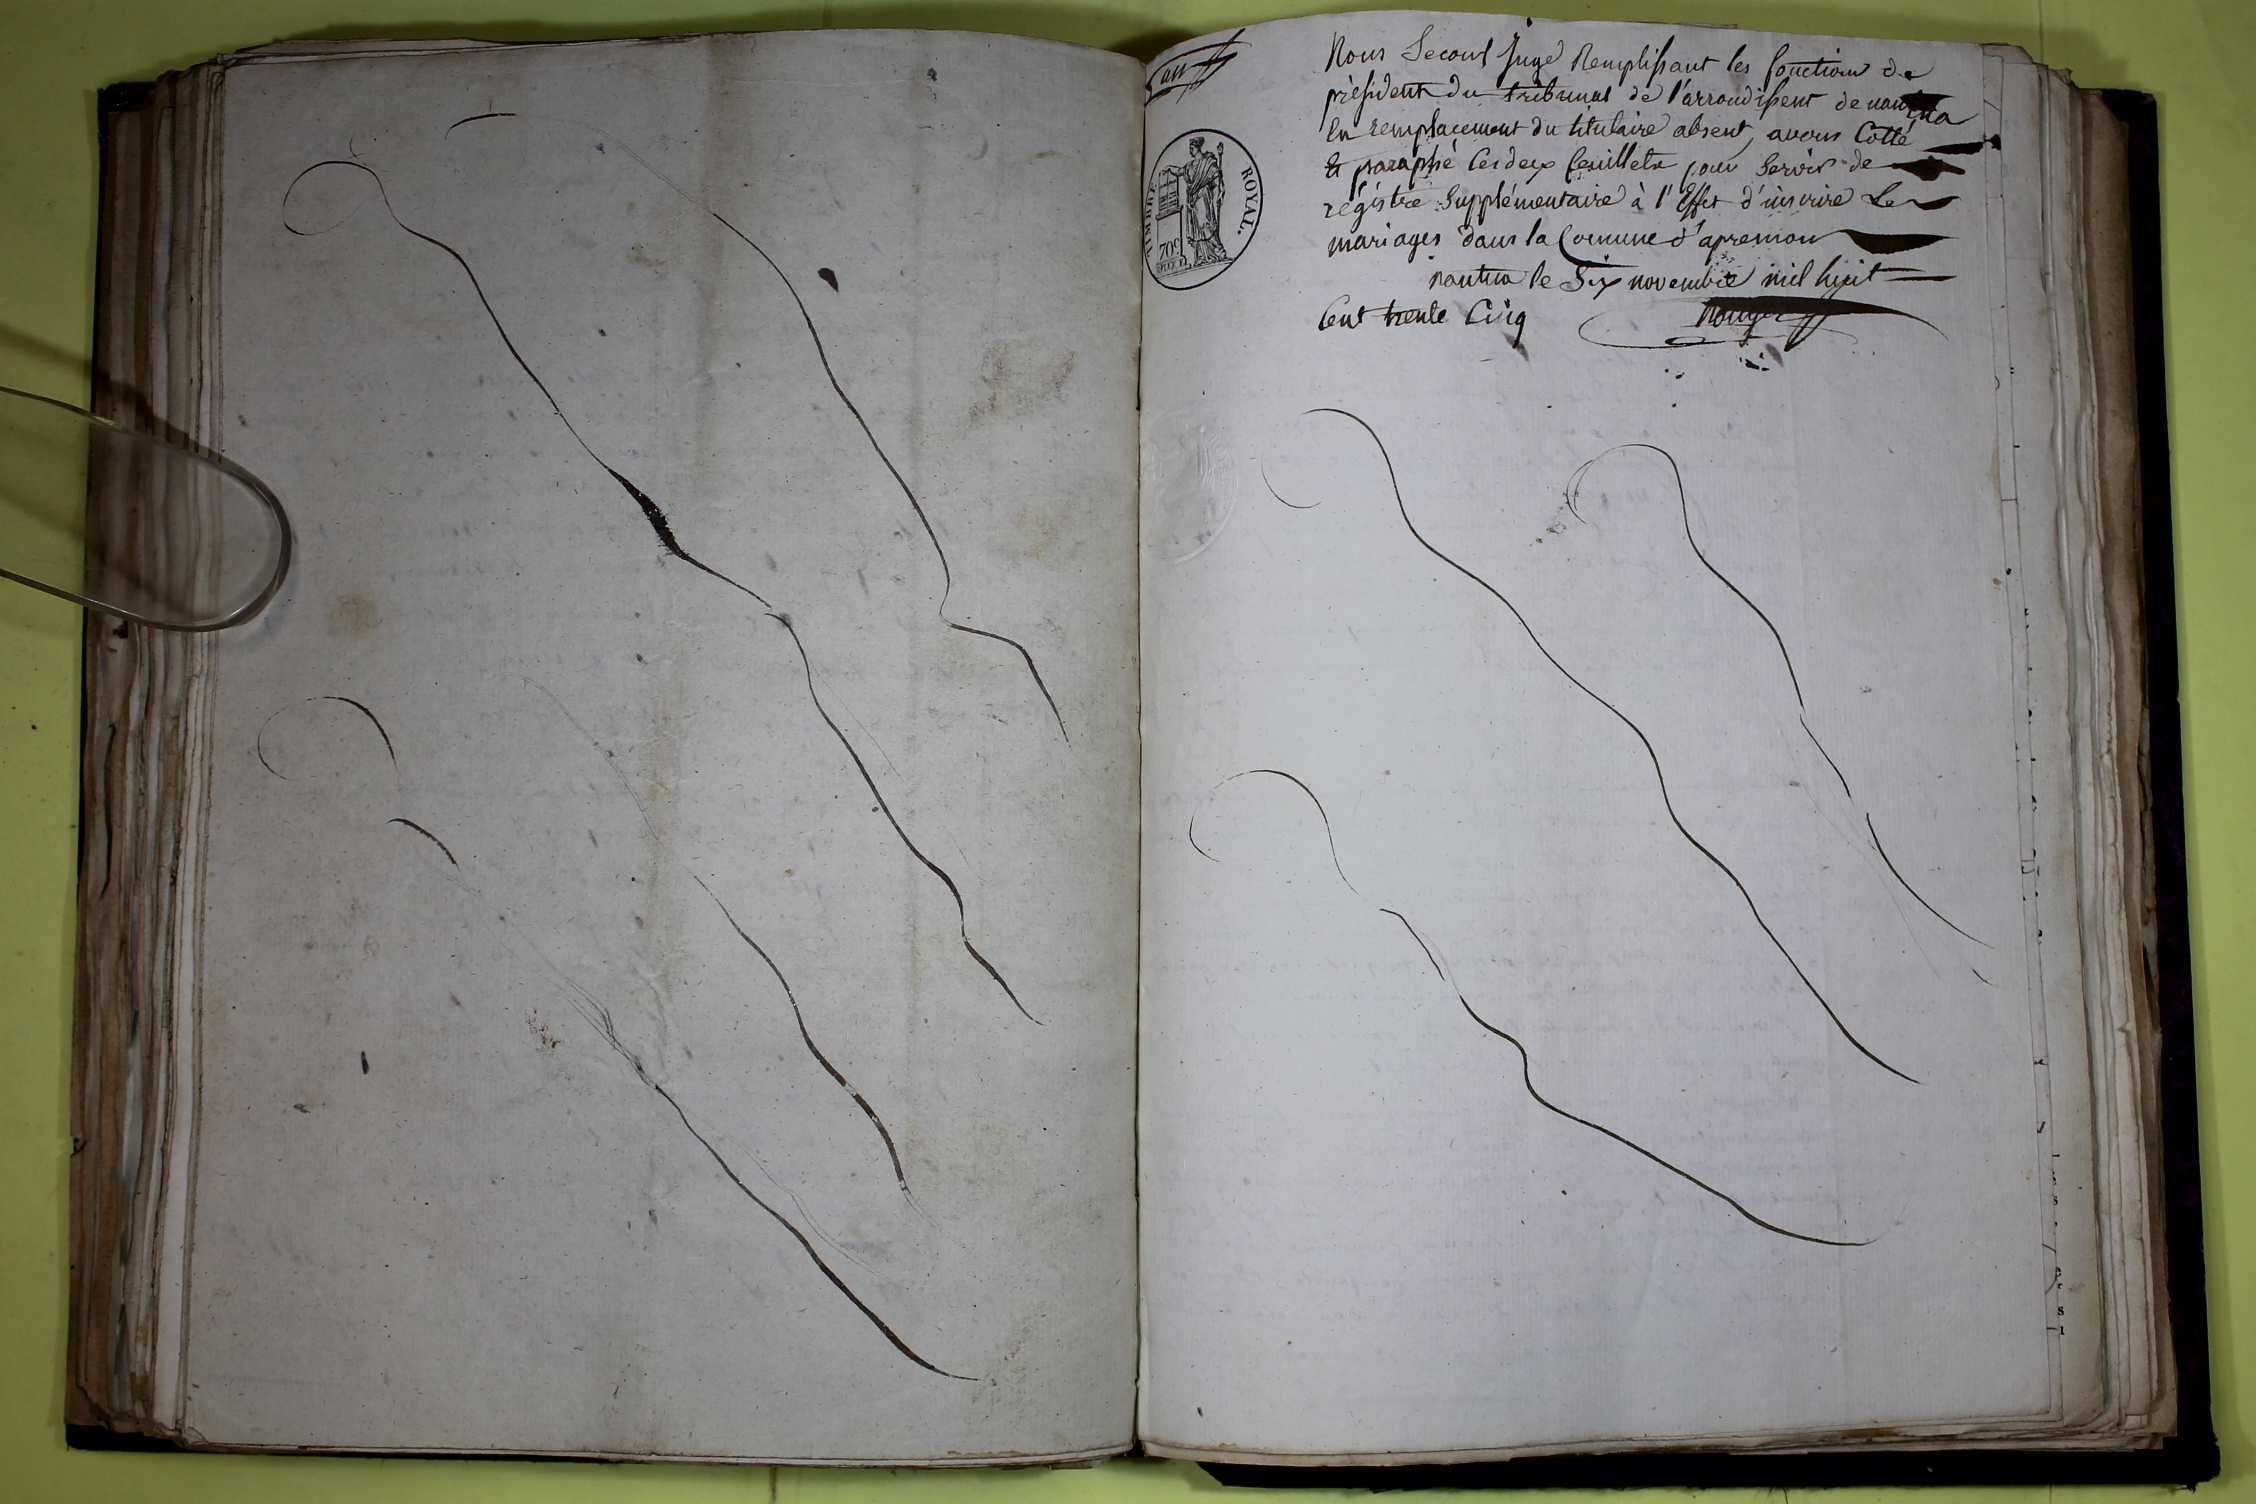 Nous Second Juge Remplissant les fonctions de
président du tribunal de l'arrondissent de nantua
En remplacement du titulaire absent, avons Cotté
Et paraphé Ces deux feuillets pour Servir de
régistre Supplémentaire à l'Effet d'inscrire Les
mariages dans la Comune d'apremont
TIMBRE ROYAL.
70c
nantua le Six novembre mil huit
Cent trente Cinq